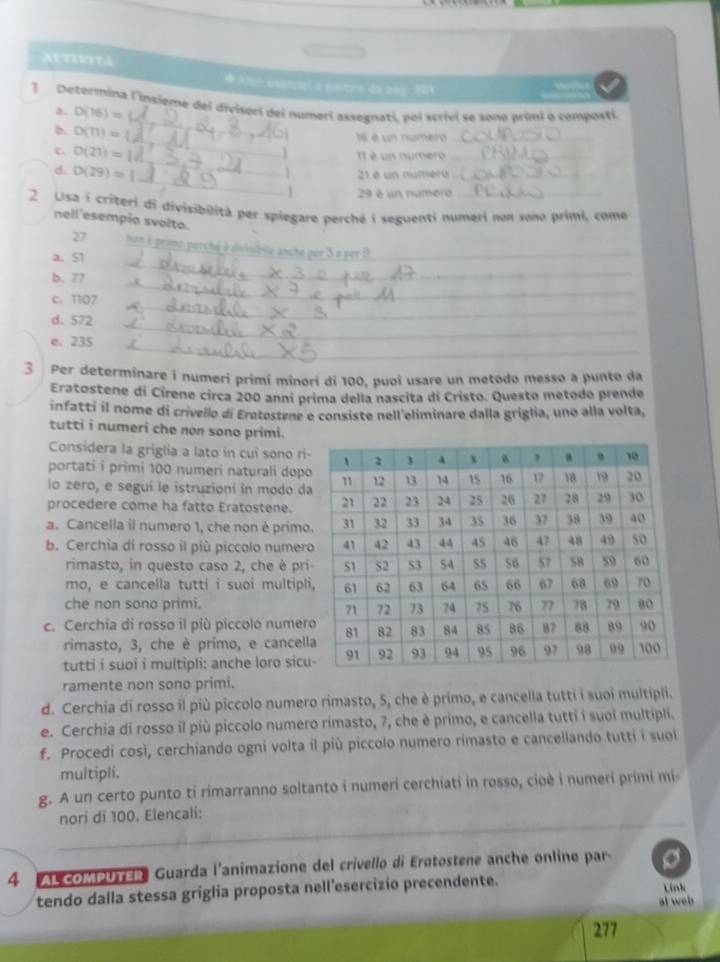 ATTIVITÀ
1 Determina l'insieme dei divisori dei numeri assegnati, poi scrivi se sono primi o composti.
a. D(16) = {1, 2, 4, 8, 16} 16 è un numero COMPOSTO
b. D(11) = {1, 11 } 11 è un numero PRIMO
c. D(21) = {1, 3, 7, 21 } 21 è un numero COMPOSTO
d. D(29) = {1 29 } 29 è un numero PRIMO
2 Usa i criteri di divisibilità per spiegare perché i seguenti numeri non sono primi, come
nell'esempio svolto.
27 non è primo perché è divisibile anche per 3 e per 9
a. 51 è divisibile x 3 e per 17
b. 77 è divisibile x 7 e per 11
c. 1107 è divisibile x 3
d. 572 è divisibile x 2
e. 235 è divisibile x5
3 Per determinare i numeri primi minori di 100, puoi usare un metodo messo a punto da
Eratostene di Cirene circa 200 anni prima della nascita di Cristo. Questo metodo prende
infatti il nome di crivello di Eratostene e consiste nell'eliminare dalla griglia, uno alla volta,
tutti i numeri che non sono primi.
Considera la griglia a lato in cui sono ri-
portati i primi 100 numeri naturali dopo
lo zero, e segui le istruzioni in modo da
procedere come ha fatto Eratostene.
a. Cancella il numero 1, che non è primo.
b. Cerchia di rosso il più piccolo numero
rimasto, in questo caso 2, che è pri-
mo, e cancella tutti i suoi multipli,
che non sono primi.
c. Cerchia di rosso il più piccolo numero
rimasto, 3, che è primo, e cancella
tutti i suoi i multipli: anche loro sicu-
ramente non sono primi.
1 2 3 4 5 6 7 8 9 10
11 12 13 14 15 16 17 18 19 20
21 22 23 24 25 26 27 28 29 30
31 32 33 34 35 36 37 38 39 40
41 42 43 44 45 46 47 48 49 50
51 52 53 54 55 56 57 58 59 60
61 62 63 64 65 66 67 68 69 70
71 72 73 74 75 76 77 78 79 80
81 82 83 84 85 86 87 88 89 90
91 92 93 94 95 96 97 98 99 100
d. Cerchia di rosso il più piccolo numero rimasto, 5, che è primo, e cancella tutti i suoi multipli.
e. Cerchia di rosso il più piccolo numero rimasto, 7, che è primo, e cancella tutti i suoi multipli.
f. Procedi così, cerchiando ogni volta il più piccolo numero rimasto e cancellando tutti i suoi
multipli.
g. A un certo punto ti rimarranno soltanto i numeri cerchiati in rosso, cioè i numeri primi mi-
nori di 100. Elencali:
4 AL COMPUTER Guarda l'animazione del crivello di Eratostene anche online par-
tendo dalla stessa griglia proposta nell'esercizio precendente.
Link
al web
277